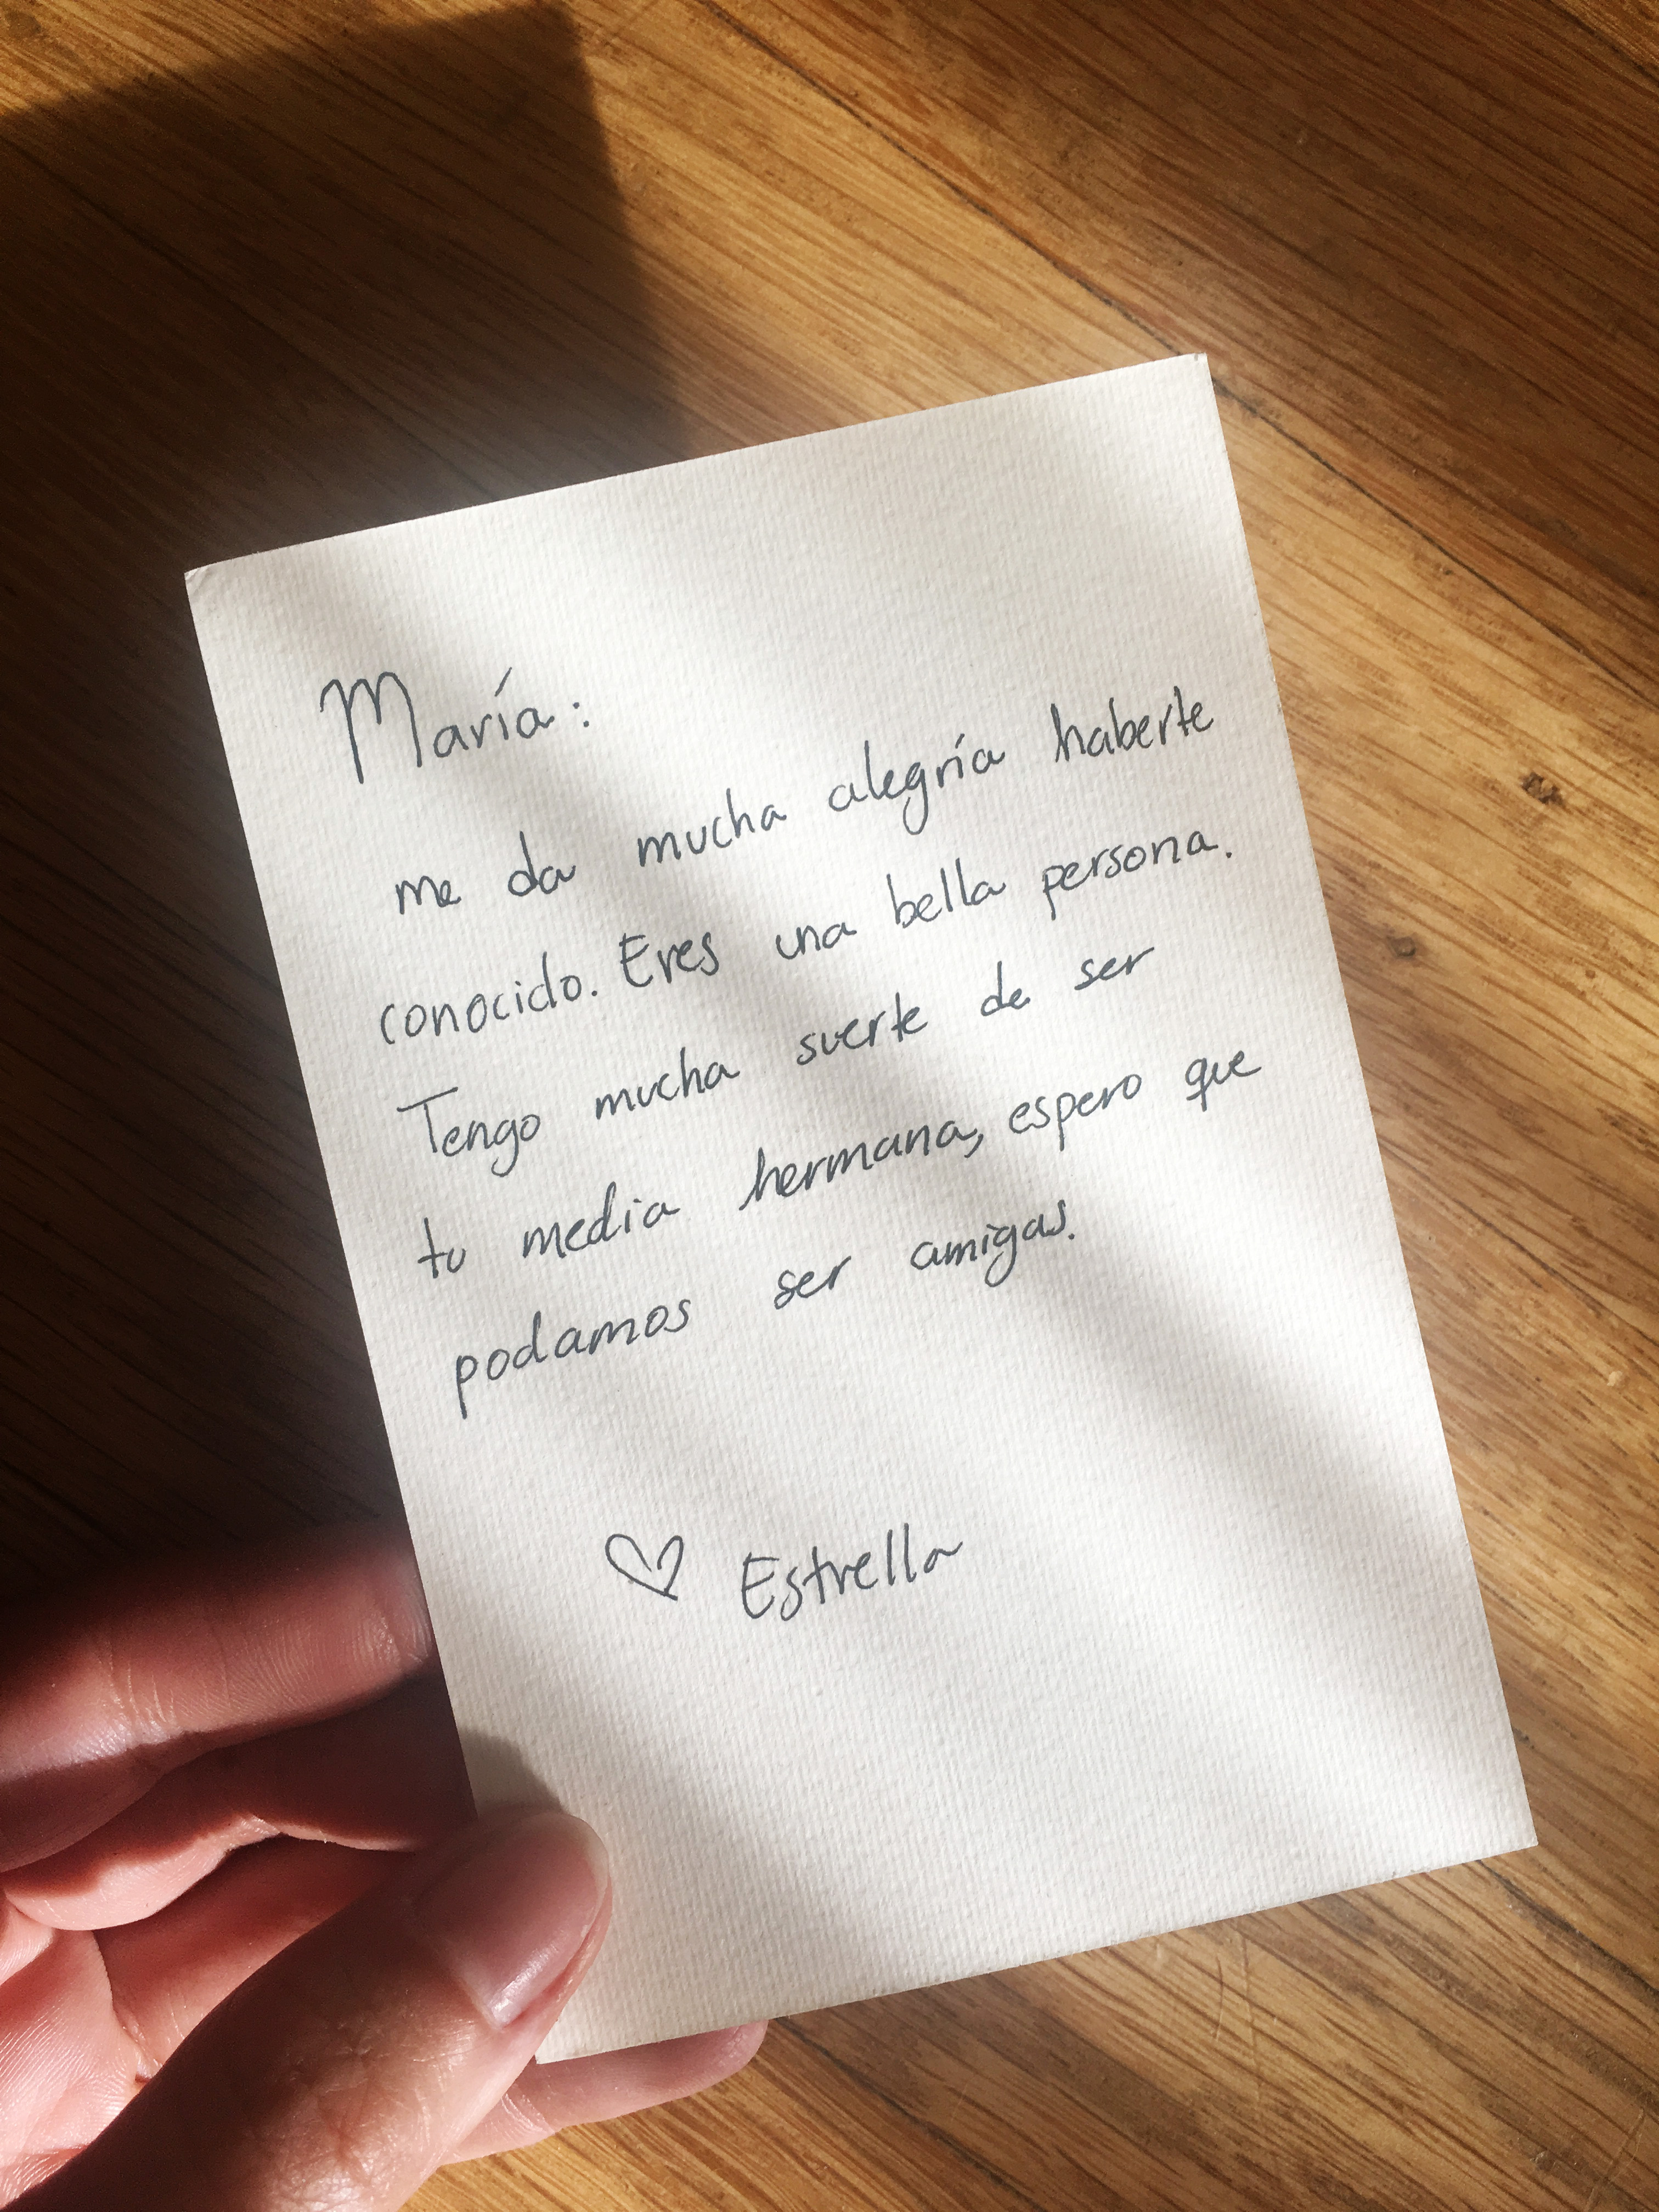 María:
me da mucha alegría haberte
conocido. Eres una bella persona.
Tengo mucha suerte de ser
tu media hermana, espero que
podamos ser amigas.
♡ Estrella